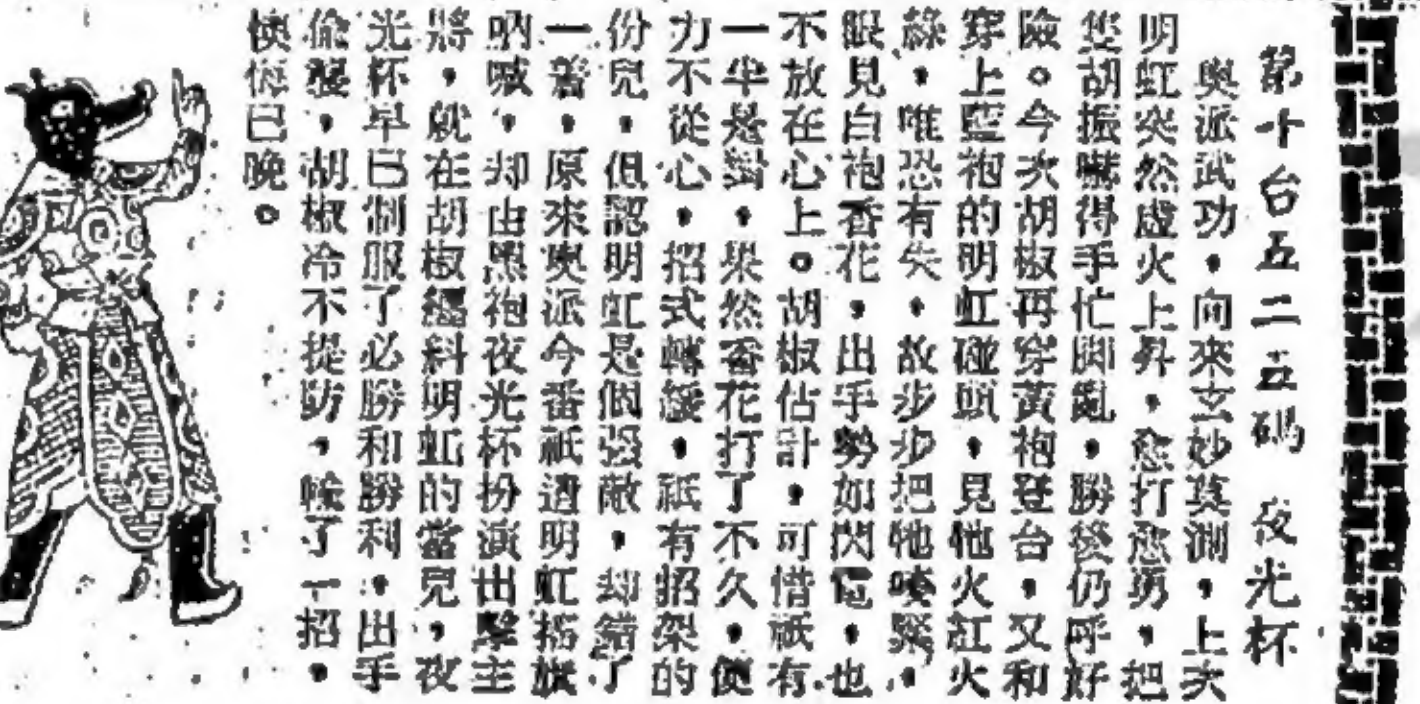 第十台五二五碼 夜光杯
奧派武功，向來玄妙莫測，上次
明虹突然虛火上昇，愈打愈勇，把
您胡振嚇得手忙脚亂，勝後仍呼好
險。今次胡椒再穿黃袍登台，又和
穿上藍袍的明虹碰頭，見牠火紅火
綠，唯恐有失，故步步把牠咬緊，
眼見白袍香花，出手勢如閃電，也
不放在心上。胡椒估計，可惜祇有
一半是對，果然香花打了不久，便
力不從心，招式轉緩，祇有招架的
份兒，但認明虹是個强敵，却錯了
一着，原來奧派今番祇遣明虹搖旗
吶喊，却由黑袍夜光杯扮演出擊主
將，就在胡椒糾明虹的當兒，夜
光杯早已制服了必勝和勝利，出手
偷襲，胡椒冷不提防，輸了一招，
懊悔已晚。